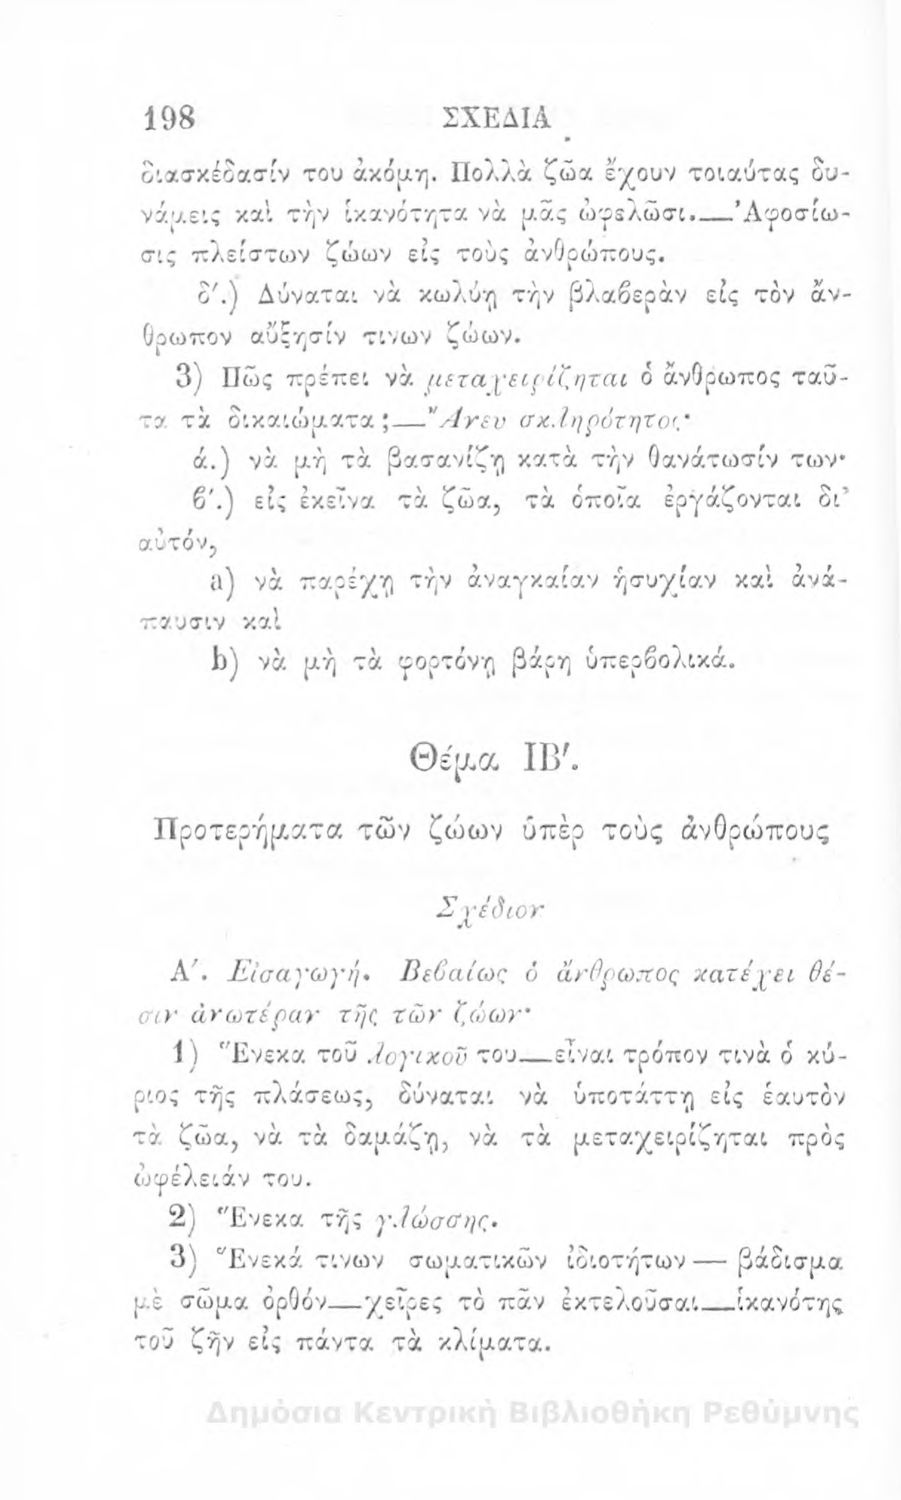 198 ΣΧΕΔΙΑ
διασκέδασίν του ἀκόμη. Πολλὰ ζῶα ἔχουν τοιαύτας δυ-
νάμεις καὶ τὴν ἱκανότητα νὰ μᾶς ὠφελῶσι.—Ἀφοσίω-
σις πλείστων ζώων εἰς τοὺς ἀνθρώπους.
δ'.) Δύναται νὰ κωλύῃ τὴν βλαβερὰν εἰς τὸν ἄν-
θρωπον αὔξησίν τινων ζώων.
3) Πῶς πρέπει νὰ μεταχειρίζηται ὁ ἄνθρωπος ταῦ-
τα τὰ δικαιώματα;—Ἄνευ σκληρότητος·
ά.) νὰ μὴ τὰ βασανίζῃ κατὰ τὴν θανάτωσίν των·
β'.) εἰς ἐκεῖνα τὰ ζῶα, τὰ ὁποῖα ἐργάζονται δι'
αὐτόν,
a) νὰ παρέχῃ τὴν ἀναγκαίαν ἡσυχίαν καὶ ἀνά-
παυσιν καὶ
b) νὰ μὴ τὰ φορτόνῃ βάρη ὑπερβολικά.
Θέμα ΙΒ'.
Προτερήματα τῶν ζώων ὑπὲρ τοὺς ἀνθρώπους
Σχέδιον
Α'. Εἰσαγωγή. Βεβαίως ὁ ἄνθρωπος κατέχει θέ-
σιν ἀνωτέραν τῆς τῶν ζώων·
1) Ἕνεκα τοῦ λογικοῦ του—εἶναι τρόπον τινὰ ὁ κύ-
ριος τῆς πλάσεως, δύναται νὰ ὑποτάττῃ εἰς ἑαυτὸν
τὰ ζῶα, νὰ τὰ δαμάζῃ, νὰ τὰ μεταχειρίζηται πρὸς
ὠφέλειάν του.
2) Ἕνεκα τῆς γλώσσης.
3) Ἕνεκά τινων σωματικῶν ἰδιοτήτων — βάδισμα
μὲ σῶμα ὀρθόν—χεῖρες τὸ πᾶν ἐκτελοῦσαι—ἱκανότης
τοῦ ζῆν εἰς πάντα τὰ κλίματα.
Δημόσια Κεντρική Βιβλιοθήκη Ρεθύμνης